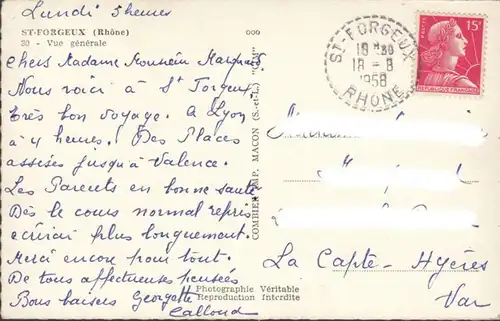 Lundi 5 heures
ST-FORGEUX (Rhône)
30 - Vue générale
Chers Madame Monsieur
Nous voici à St Forgeux
très bon voyage. A Lyon
à 4 heures. Des Places
assises jusqu'à Valence.
Les Parents en bonne santé
Dès le cours normal repris
écrirai plus longuement.
Merci encore pour tout.
De tous affectueuses pensées
Bons baisers Georgette
Calloud
000
COMBIER IMP. MACON (S.-et-L.) "CIM"
Photographie Véritable
Reproduction Interdite
ST-FORGEUX
18 H30
18 - 8
1958
RHONE
POSTES
15F
REPUBLIQUE FRANCAISE
La Capte - Hyères
Var